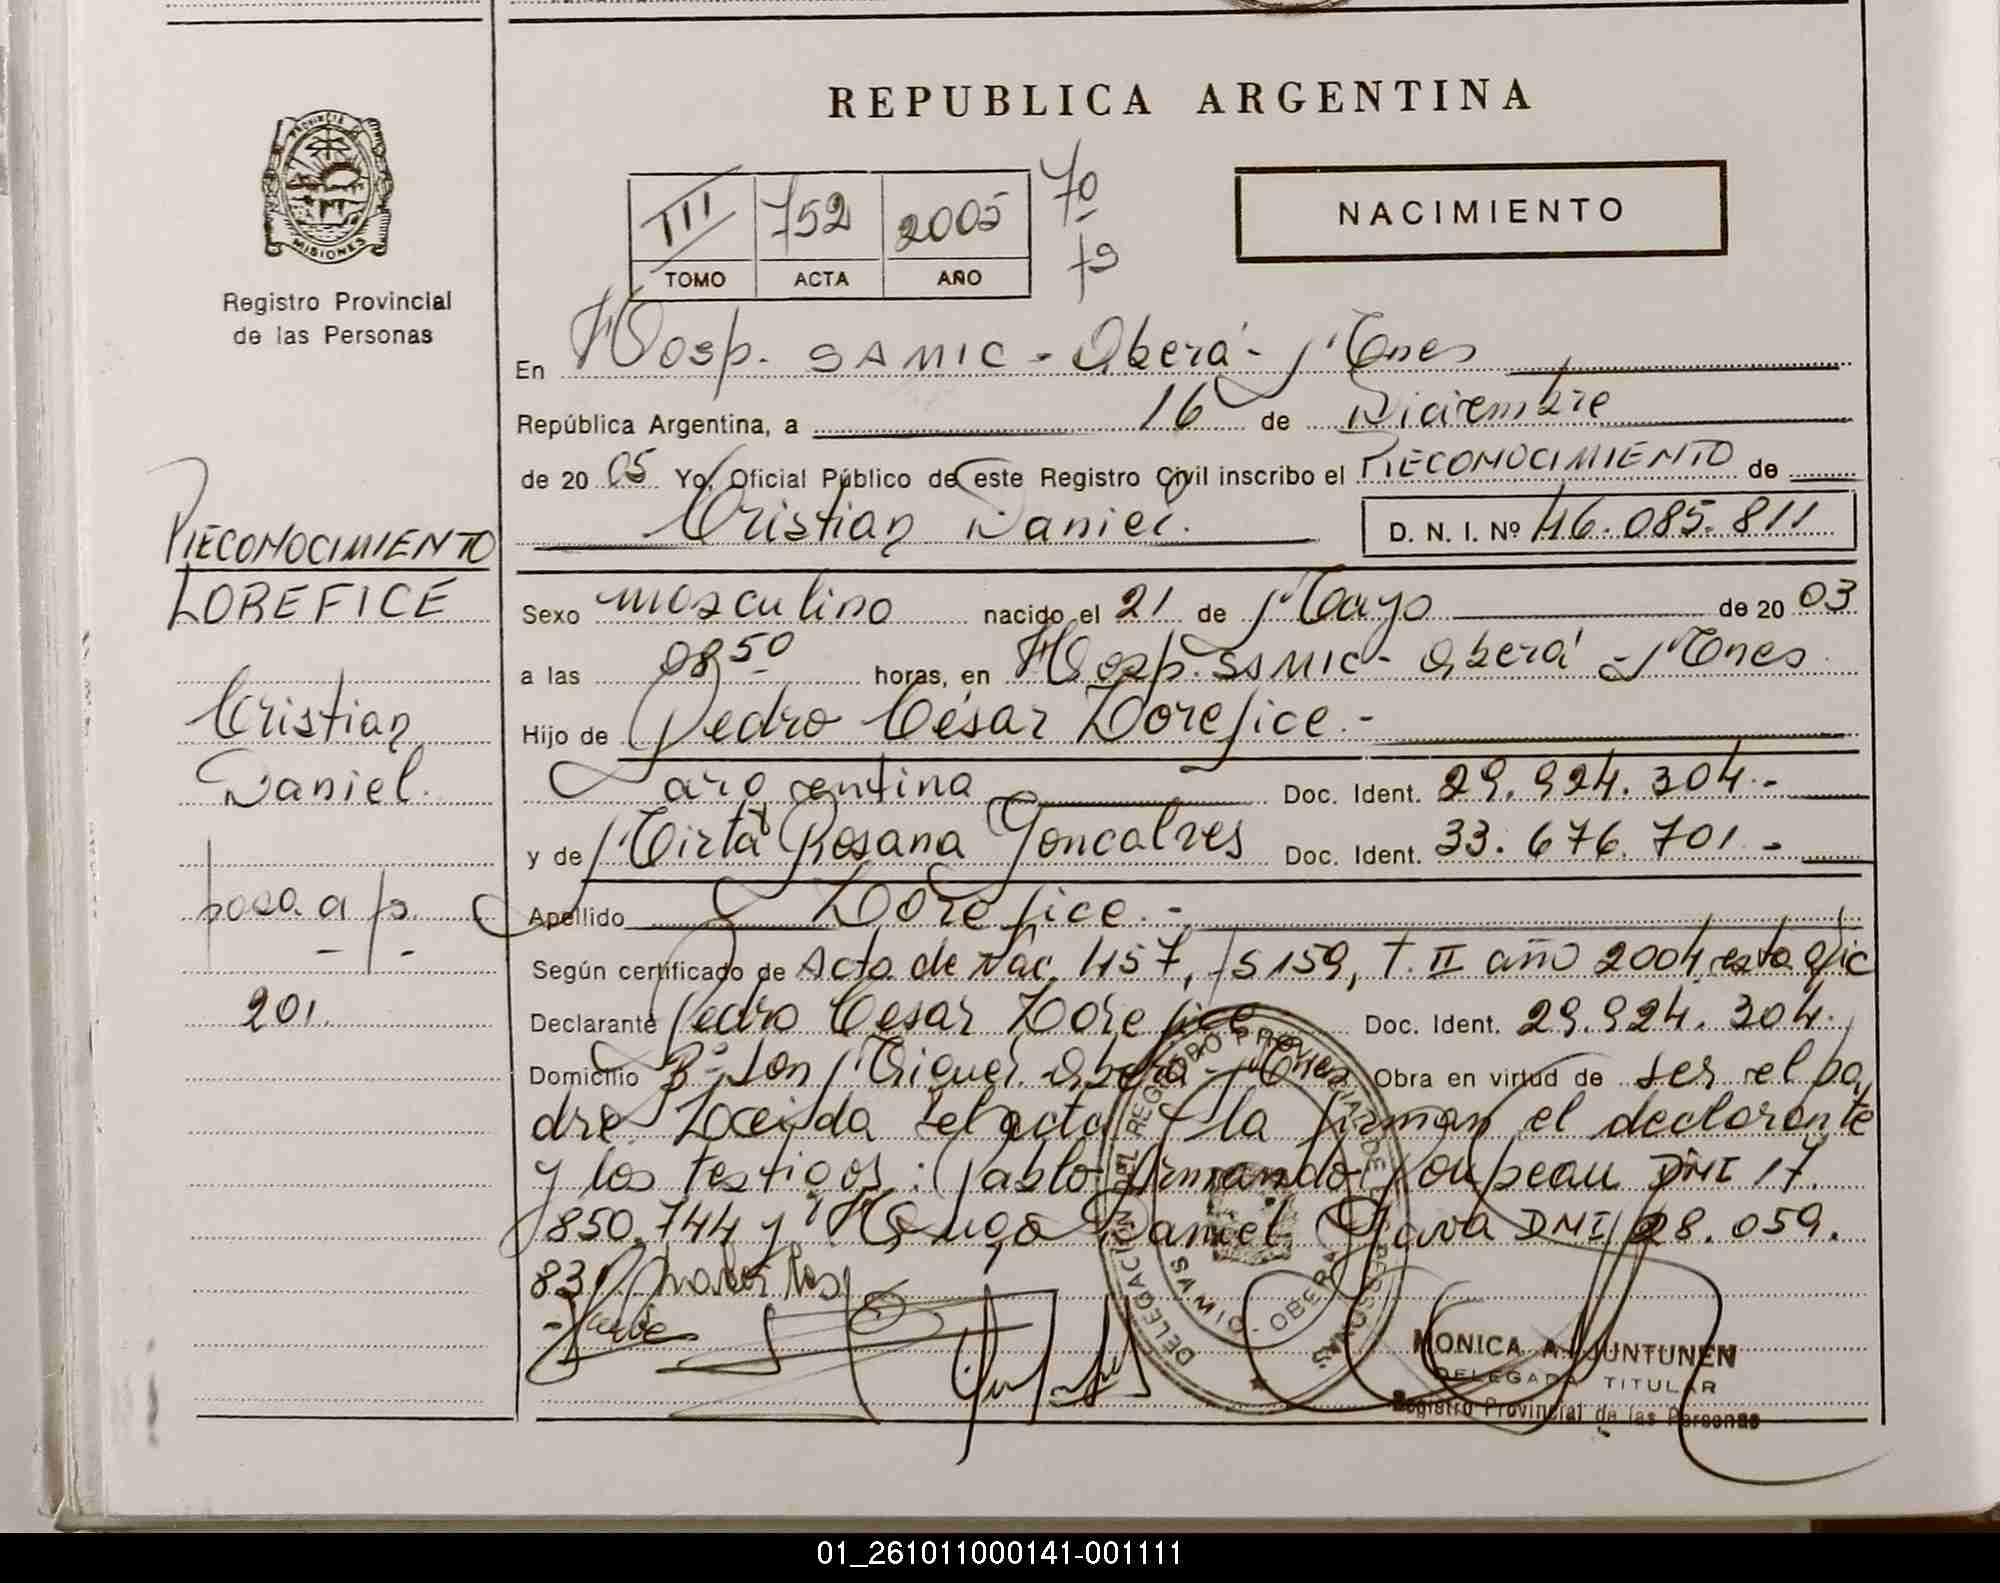 REPUBLICA ARGENTINA
PROVINCIA DE
MISIONES
Registro Provincial
de las Personas
III 752 2005 70
TOMO ACTA AÑO fs
NACIMIENTO
En Hosp. SAMIC - Oberá - Mnes
República Argentina, a 16 de Diciembre
de 20 05 Yo, Oficial Público de este Registro Civil inscribo el RECONOCIMIENTO de
Cristian Daniel. D. N. I. Nº 46.085.811
RECONOCIMIENTO
LOREFICE
Cristian
Daniel.
pasa a fs.
201.
Sexo masculino nacido el 21 de Mayo de 20 03
a las 08 50 horas, en Hosp. SAMIC - Oberá - Mnes
Hijo de Pedro César Lorefice.-
argentina Doc. Ident. 29.924.304.-
y de Mirta Rosana Goncalves Doc. Ident. 33.676.701.-
Apellido Lorefice.-
Según certificado de Acta de Nac. 457, fs 159, T. II año 2004 esta ofic
Declarante Pedro Cesar Lorefice Doc. Ident. 29.924.304.
Domicilio Bº San Miguel Oberá - Mnes Obra en virtud de ser el pa
dre Leida el acta la firman el declarante
y los testigos: Pablo Armando Poupeau DNI 17.
850.744 y Hugo Daniel DNI 28.059.
DELEGACION DEL REGISTRO PROVINCIAL DE LAS PERSONAS
OBERA
MONICA A. JUNTUNEN
DELEGADA TITULAR
Registro Provincial de las Personas
01_261011000141-001111